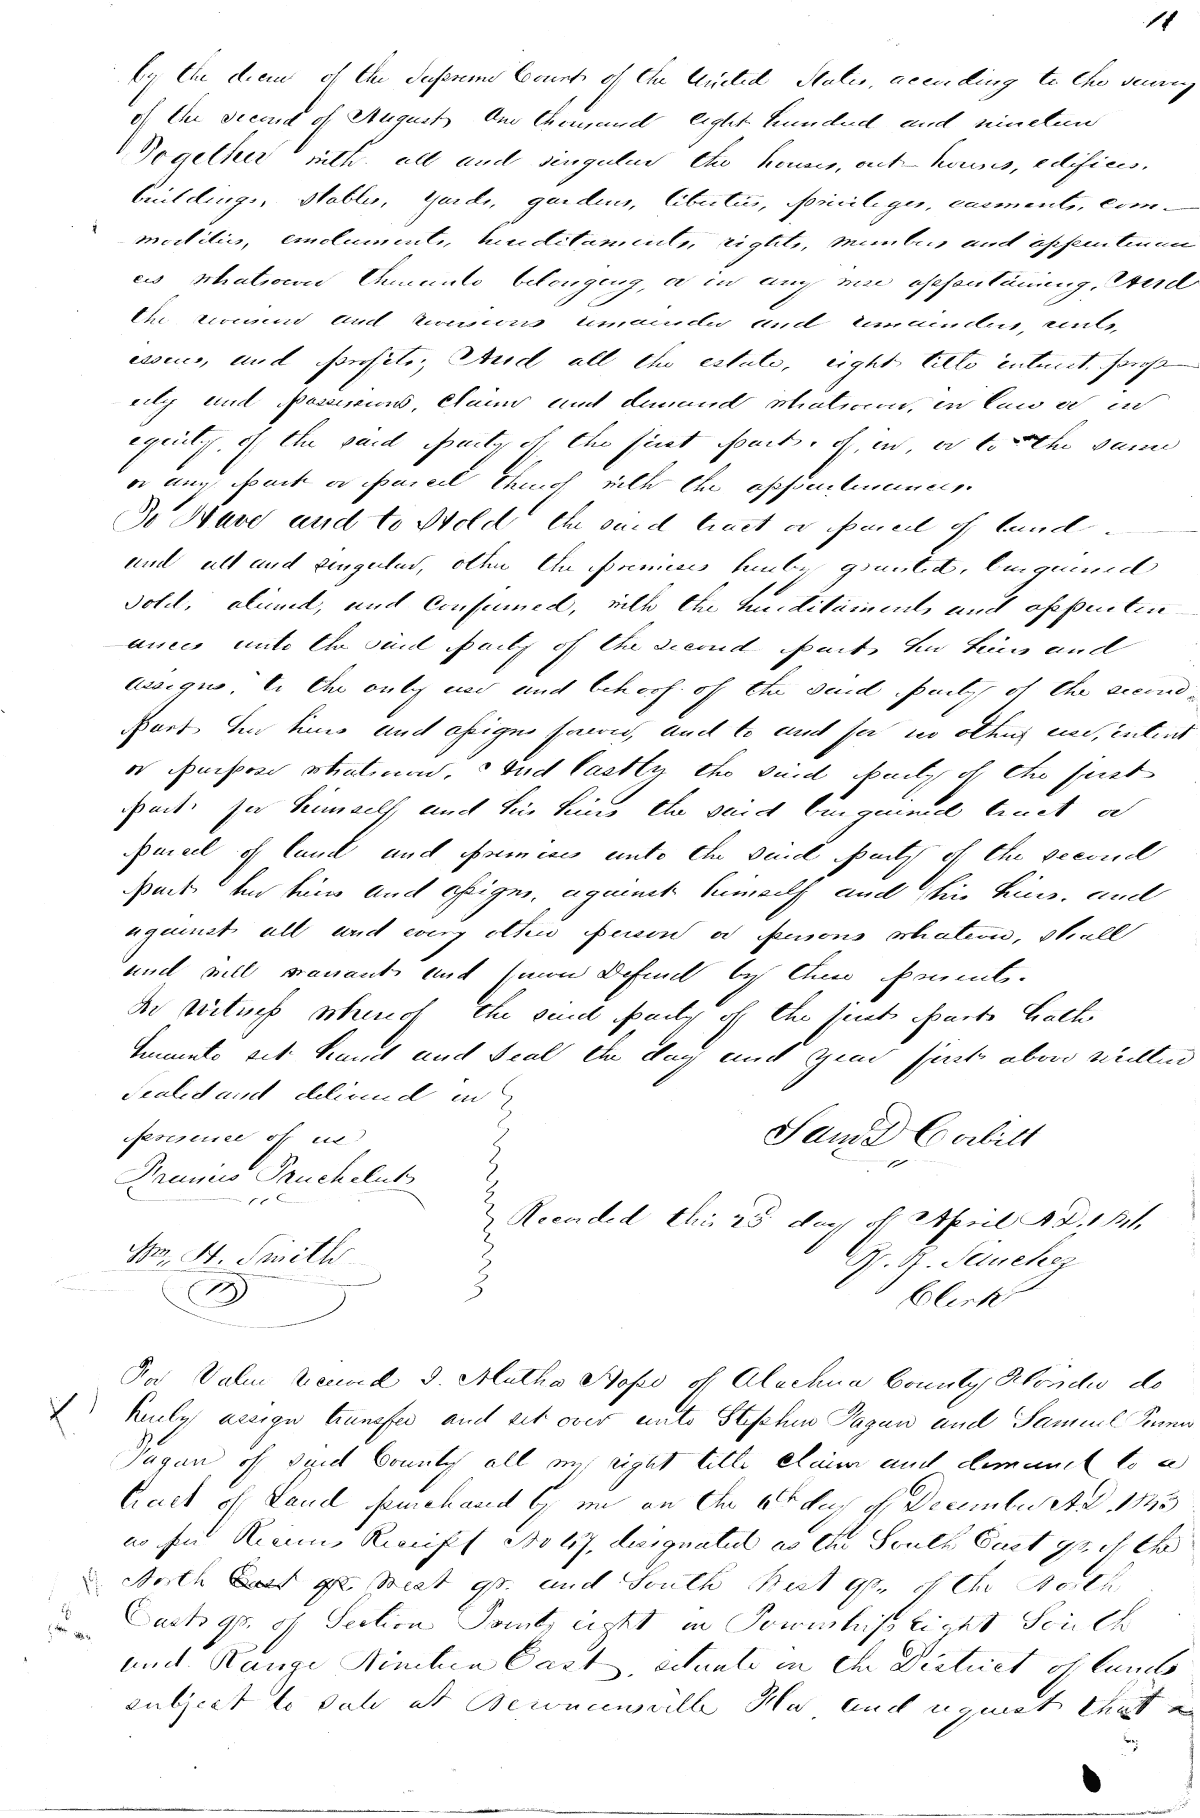 by the decree of the Supreme Court of the United States, according to the survey
of the second of August One thousand eight hundred and nineteen
Together with all and singular the houses, out houses, edifices,
buildings, stables, yards, gardens, liberties, privileges, easments, com-
modities, emoluments, hereditaments, rights, members and appurtenan
ces whatsoever thereunto belonging, or in any wise appertaining, And
the reversion and reversions remainder and remainders, rents,
issues, and profits; And all the estate, right title interest, prop-
erty and possessions, claim and demand whatsoever, in law or in
equity, of the said party of the first part, of, in, or to the same
or any part or parcel thereof with the appurtenances.
To Have and to Hold the said tract or parcel of land
and all and singular, other the premises hereby granted, bargained
sold, aliened, and confirmed, with the hereditaments and appurten
-ances unto the said party of the second part, her heirs and
assigns, to the only use and behoof of the said party of the second
part her heirs and assigns forever, and to and for no other use, intent
or purpose whatsoever. And lastly the said party of the first
part for himself, and his heirs the said bargained tract or
parcel of land and premises unto the said party of the second
part her heirs and assigns, against himself and his heirs, and
against all and every other person or persons whatever, shall
and will warrant and forever Defend by these presents.
In Witness whereof the said party of the first part hath
hereunto set hand and seal the day and year first above written
Sealed and delivered in
presence of us
Saml D Corbitt
Francis
Recorded this 25 day of April A.D.
Wm. H. Smith
Sanchez
Clerk
For Value received I. of Alachua County Florida do
hereby assign transfer and set over unto Stephen Fagan and Samuel
Fagan of said County all my right title claim and demand to a
tract of Land purchased by me on the day of December A.D. 1843
as per Receivers Receipt No 47, designated as the South East qr. of the
North East qr. West qr. and South West qr. of the North
East qr. of Section Twenty eight in Township Eight South
and Range Nineteen East, situate in the District of lands
subject to sale at Newnansville Fla and request that a